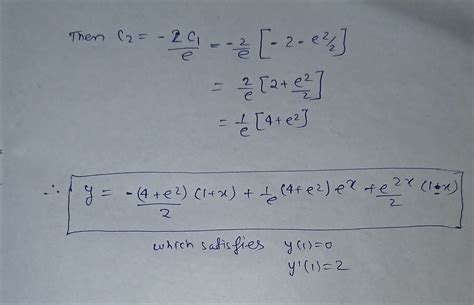 Then C₂ = -2C₁/e = -2/e [-2 - e²/2]
= 2/e [2 + e²/2]
= 1/e [4 + e²]
∴ y = -(4+e²)/2 (1+x) + 1/e (4+e²) eˣ + e²ˣ/2 (1-x)
which satisfies y(1)=0
y'(1)=2